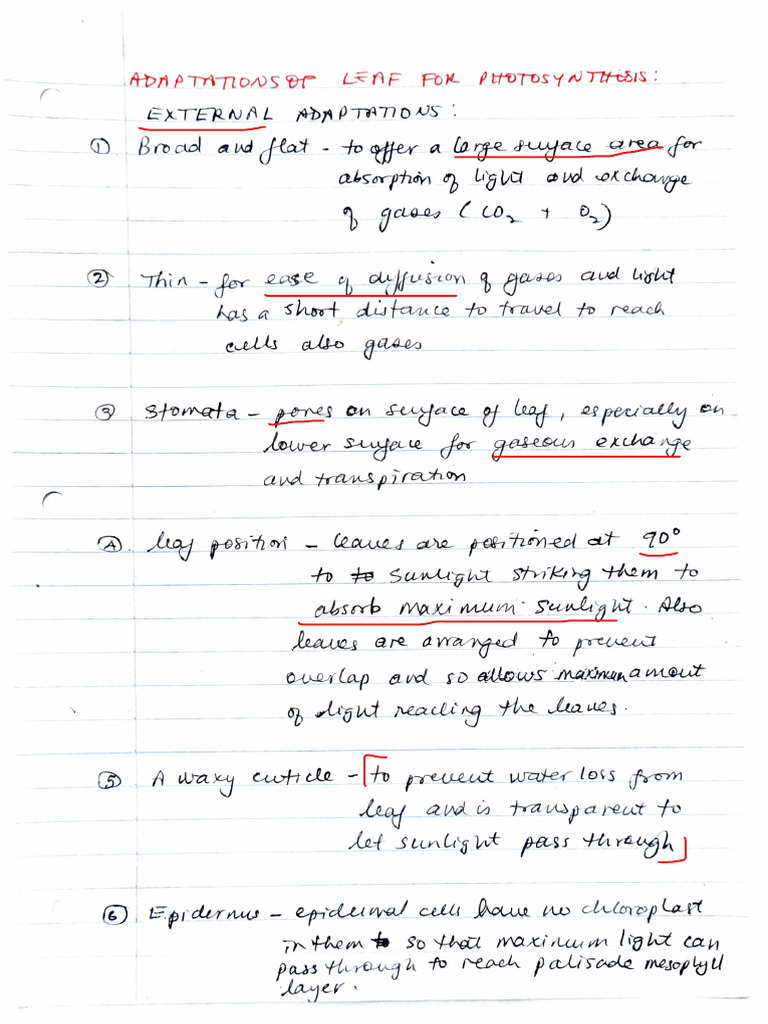 ADAPTATIONS OF LEAF FOR PHOTOSYNTHESIS:
EXTERNAL ADAPTATIONS:
① Broad and flat - to offer a large surface area for
absorption of light and exchange
of gases (CO2 + O2)
② Thin - for ease of diffusion of gases and light
has a short distance to travel to reach
cells also gases
③ Stomata - pores on surface of leaf, especially on
lower surface for gaseous exchange
and transpiration
④ leaf position - leaves are positioned at 90°
to to sunlight striking them to
absorb maximum sunlight. Also
leaves are arranged to prevent
overlap and so allows maximum amout
of light reacling the leaves.
⑤ A waxy cuticle - to prevent water loss from
leaf and is transparent to
let sunlight pass through
⑥ Epidermis - epidermal cells have no chloroplast
in them to so that maximum light can
pass through to reach palisade mesophyll
layer.